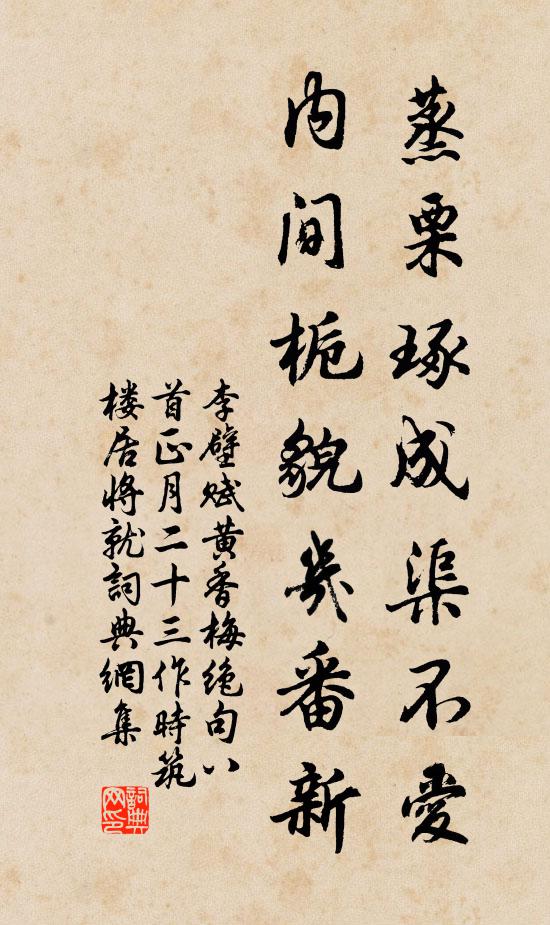 蒸栗琢成渠不愛
内间栀貌幾番新
李壁赋黄香梅绝句八
首正月二十三作時筑
楼居将就詞典網集
詞典
网印